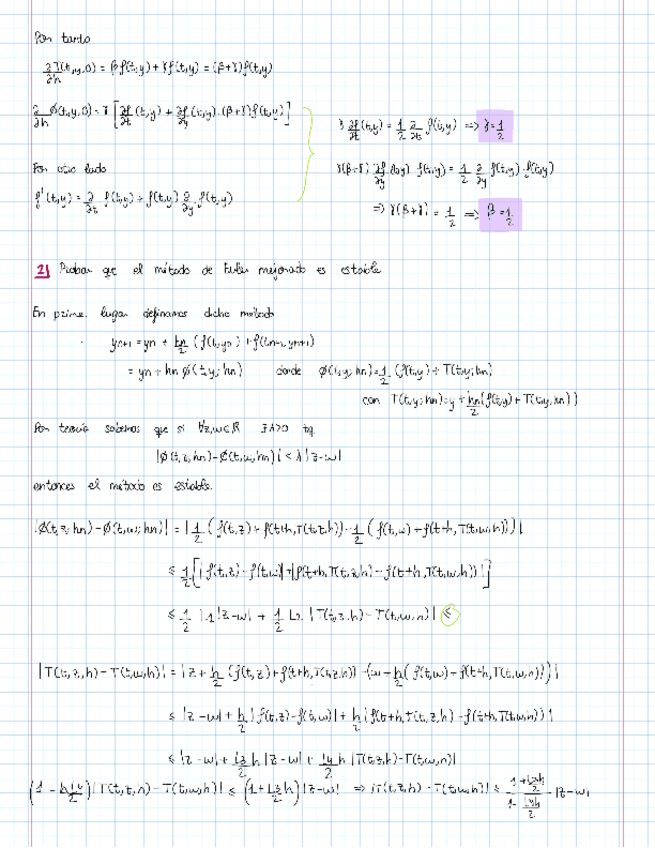 Por tanto
∂T/∂h (t,y,0) = β f(t,y) + γ f(t,y) = (β+γ) f(t,y)
∂/∂h φ(t,y,0) = γ [ ∂f/∂t (t,y) + ∂f/∂y (t,y)·(β+γ) f(t,y) ]
γ ∂f/∂t (t,y) = 1/2 ∂/∂t f(t,y) => γ = 1/2
Por otro lado
γ(β+γ) ∂f/∂y (t,y) f(t,y) = 1/2 ∂/∂y f(t,y)·f(t,y)
f'(t,y) = ∂/∂t f(t,y) + f(t,y) ∂/∂y f(t,y)
=> γ(β+γ) = 1/2 => β = 1/2
2) Probar que el método de Euler mejorado es estable
En primer lugar definamos dicho método
yn+1 = yn + hn/2 (f(t,yn) + f(tn+1, yn+1))
= yn + hn φ(t,y;hn) donde φ(t,y;hn) = 1/2 (f(t,y) + T(t,y;hn)
con T(t,y;hn) = y + hn/2 (f(t,y) + T(t,y,hn))
Por teoría sabemos que si ∀z,w∈ℝ ∃λ>0 tq
|φ(t,z,hn) - φ(t,w,hn)| < λ|z-w|
entonces el método es estable.
|φ(t,z;hn) - φ(t,w;hn)| = |1/2 (f(t,z) + f(t+h,T(t,z,h)) - 1/2 (f(t,w) + f(t+h,T(t,w,h)))|
≤ 1/2 [|f(t,z) - f(t,w)| + |f(t+h,T(t,z,h) - f(t+h,T(t,w,h))|]
≤ 1/2 L1|z-w| + 1/2 L2 |T(t,z,h) - T(t,w,h)| ≤
|T(t,z,h) - T(t,w,h)| = |z + h/2 (f(t,z) + f(t+h,T(t,z,h)) - (w + h/2 (f(t,w) + f(t+h,T(t,w,h))))|
≤ |z-w| + h/2 |f(t,z) - f(t,w)| + h/2 |f(t+h,T(t,z,h) - f(t+h,T(t,w,h))|
≤ |z-w| + L3/2 h |z-w| + L4/2 h |T(t,z,h) - T(t,w,h)|
(1 - hL4/2) |T(t,z,h) - T(t,w,h)| ≤ (1 + L3h/2) |z-w| => |T(t,z,h) - T(t,w,h)| ≤ (1 + L3h/2)/(1 - L4h/2) · |z-w|